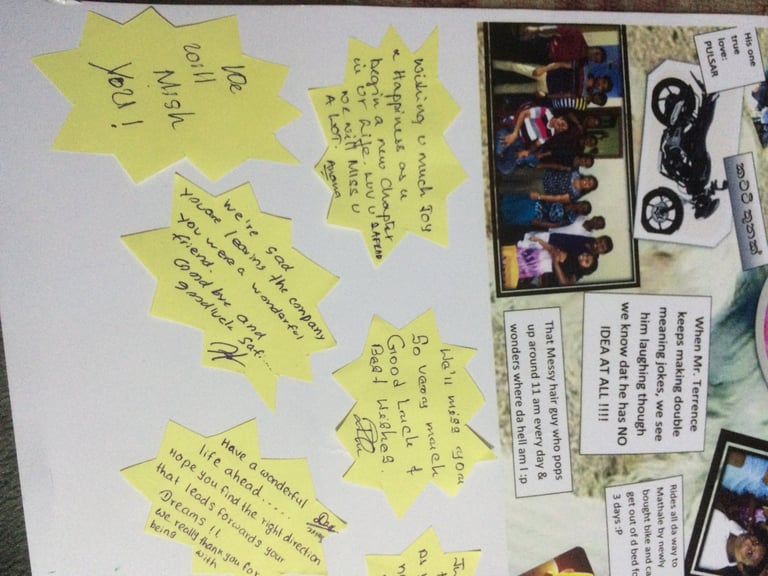 We
will
Mish
you!
Wishing u much Joy
& Happiness as u
begin a new chapter
in ur life. LUV U SAFEAD
We will Miss u
A LOT.
We're sad
you are leaving the company
you were a wonderful
friend.
Good bye and
goodluck Saf....
We'll miss you
So very much
Good Luck &
Best Wishes.
Have a wonderful
life ahead.....
Hope you find the right direction
that leads forwards your
Dreams !!
we really thank you for
being with
His one
true
love:
PULSAR
කටටි කුනක්
When Mr. Terrence
keeps making double
meaning jokes, we see
him laughing though
we know dat he has NO
IDEA AT ALL !!!!
That Messy hair guy who pops
up around 11 am every day &
wonders where da hell am I :p
Rides all da way to
Mathale by newly
bought bike and ca
get out of d bed fo
3 days :P